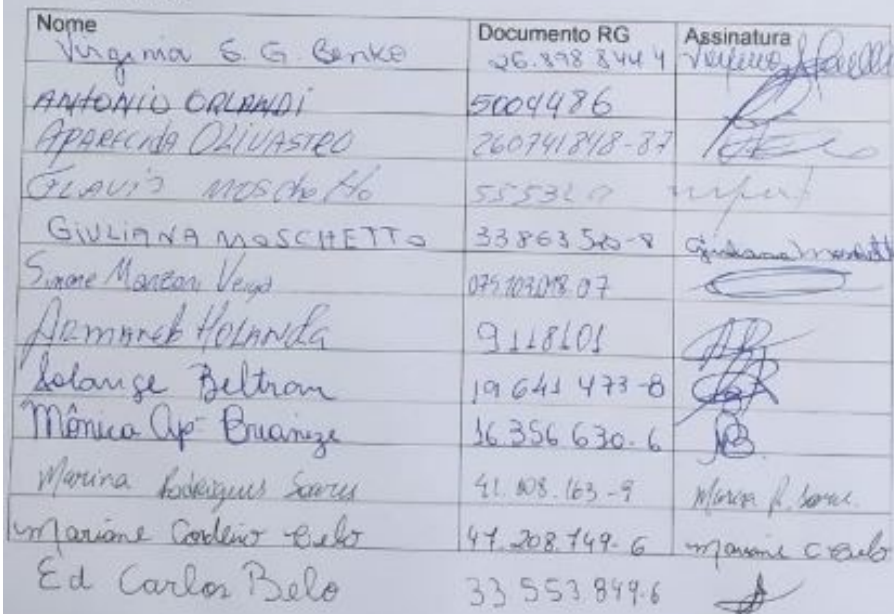 Nome Documento RG Assinatura
Virginia S. G. Benko 26.898 844 4
ANTONIO ORLANDI 5004486
APARECIDA OLIVASTRO 260741848-87
FLAVIO MOSCHETTO
GIULIANA MOSCHETTO 33863520-8 Giuliana Moschetto
Simone Manzan Veiga
ARMANDO HOLANDA 9118101
Solange Beltran 19 641 473-8
Mônica Ap. 16.356 630-6
Marina Rodrigues Soares 41.808.163-9 Marina R. Soares
Mariane Cordeiro Belo 47.208.749-6 Mariane C Belo
Ed Carlos Belo 33 553.849-6